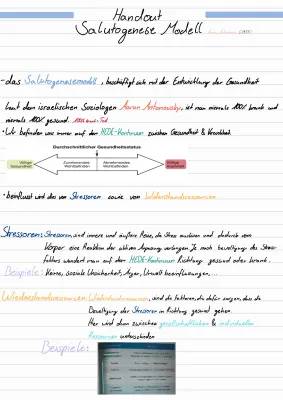 Handout
Salutogenese Modell
-das Salutogenesemodell, beschäftigt sich mit der Entwicklung der Gesundheit
Laut dem israelischen Soziologen Aaron Antonovsky, ist man niemals 100% krank und
niemals 100% gesund.
• Wir befinden uns immer auf der HEDE-Kontinuum zwischen Gesundheit & Krankheit.
Durchschnittlicher Gesundheitsstatus
Völlige Gesundheit
Zunehmendes Wohlbefinden
Abnehmendes Wohlbefinden
Völlige
• beeinflusst wird dies von Stressoren sowie von Widerstandsressourcen
Stressoren: Stressoren, sind innere und äußere Reize, die Stress auslösen und dadurch vom
Körper eine Reaktion der aktiven Anpassung verlangen. Je nach bewältigung des Stress-
faktors wandert man auf der HEDE-Kontinuum Richtung gesund oder krank.
Beispiele: soziale Unsicherheit, Umwelt beeinflussungen,...
Widerstandsressourcen: Widerstandsressourcen, sind die Faktoren, die dafür sorgen, dass die
Bewältigung der Stressoren in Richtung gesund gehen.
Hier wird dann zwischen gesellschaftlichen & individuellen
Ressourcen unterschieden
Beispiele: